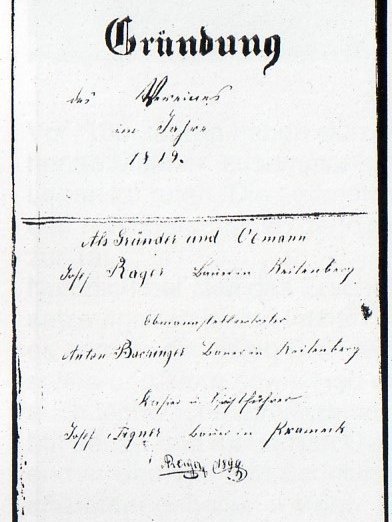 Gründung
des Vereines
im Jahre
1819.
Als Gründer und Obmann
Josef Rager Bauer in Reitenberg
Obmannstellvertreter
Anton Bacringer Bauer in Reitenberg
Kasier u. Schriftführer
Josef Aigner Bauer in Krameck
1899